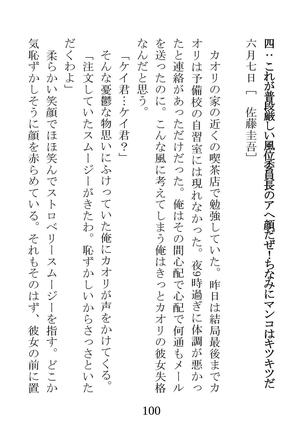 六月七日［　佐藤圭吾］
カオリの家の近くの喫茶店で勉強していた。昨日は結局最後までカ
オリは予備校の自習室には現れなかった。夜9時過ぎに体調が悪かっ
たと連絡があっただけだった。俺はその間心配で心配で何通もメール
を送ったのに。こんな風に考えてしまう俺はきっとカオリの彼女失格
なんだと思う。
「ケイ君…ケイ君？」
そんな憂鬱な物思いにふけっていた俺にカオリが声をかけてくる。
「注文していたスムージーがきたわ。恥ずかしいからさっさといた
だくわよ」
柔らかい笑顔でほほ笑んでストロベリースムージーを指す。どこか
気恥ずかしそうに顔を赤らめている。それもそのはず、彼女の前に置
100